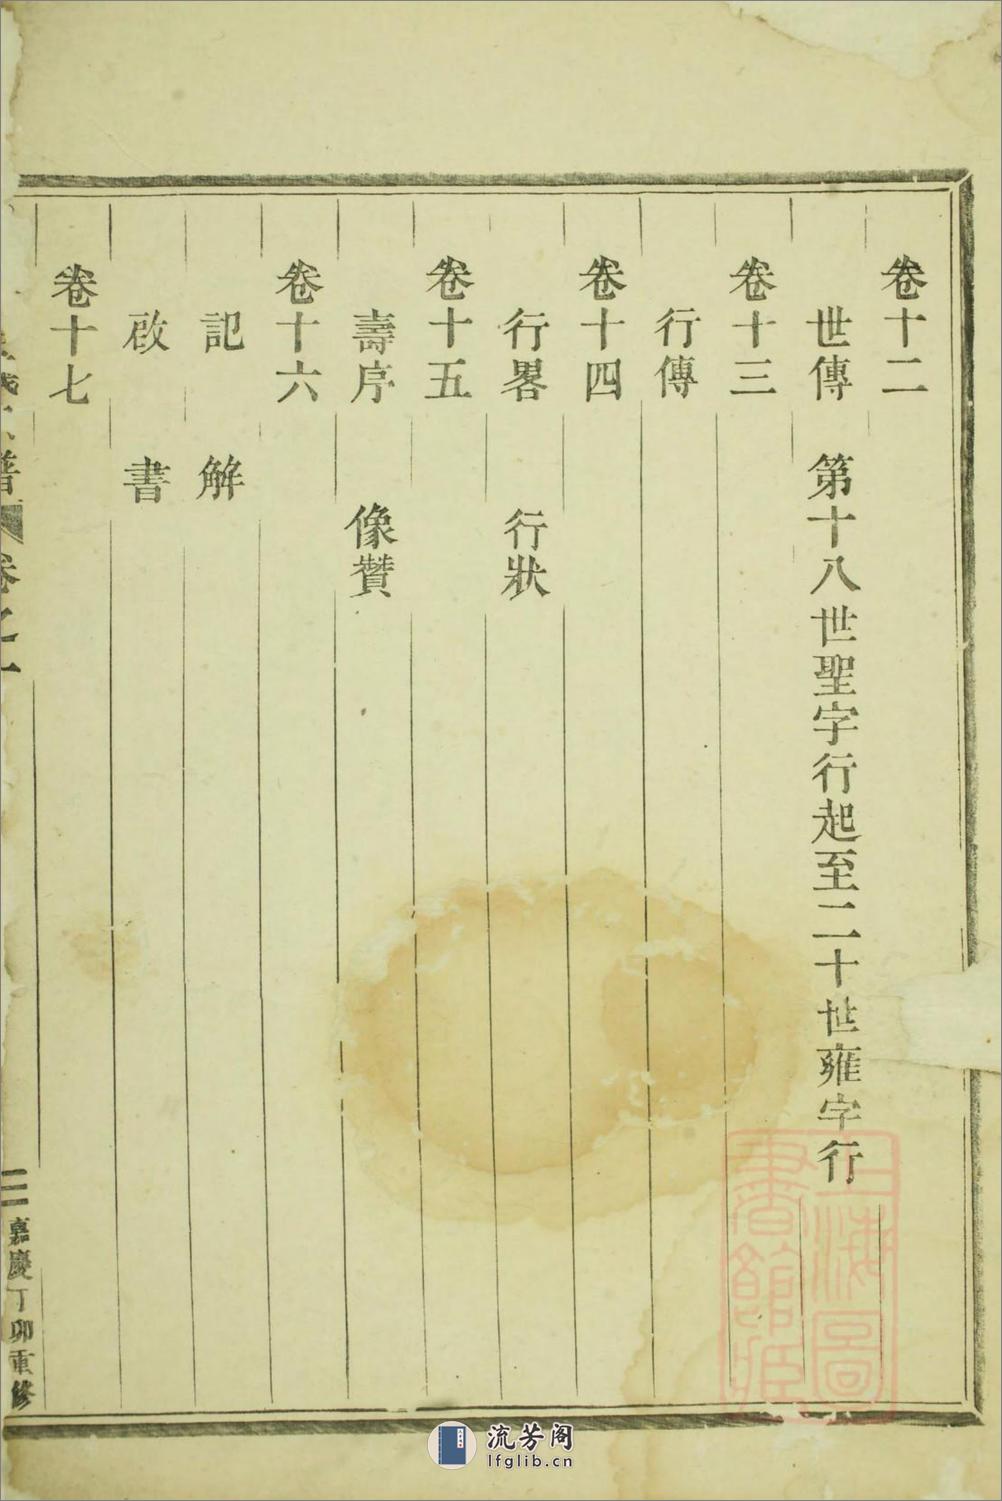 卷十二
世傳 第十八世聖字行起至二十世雍字行
卷十三
行傳
卷十四
行畧 行狀
卷十五
壽序 像贊
卷十六
記 解
啟 書
卷十七
譜 卷之一
三 嘉慶丁卯重修
上海圖書館藏
流芳阁
lfglib.cn